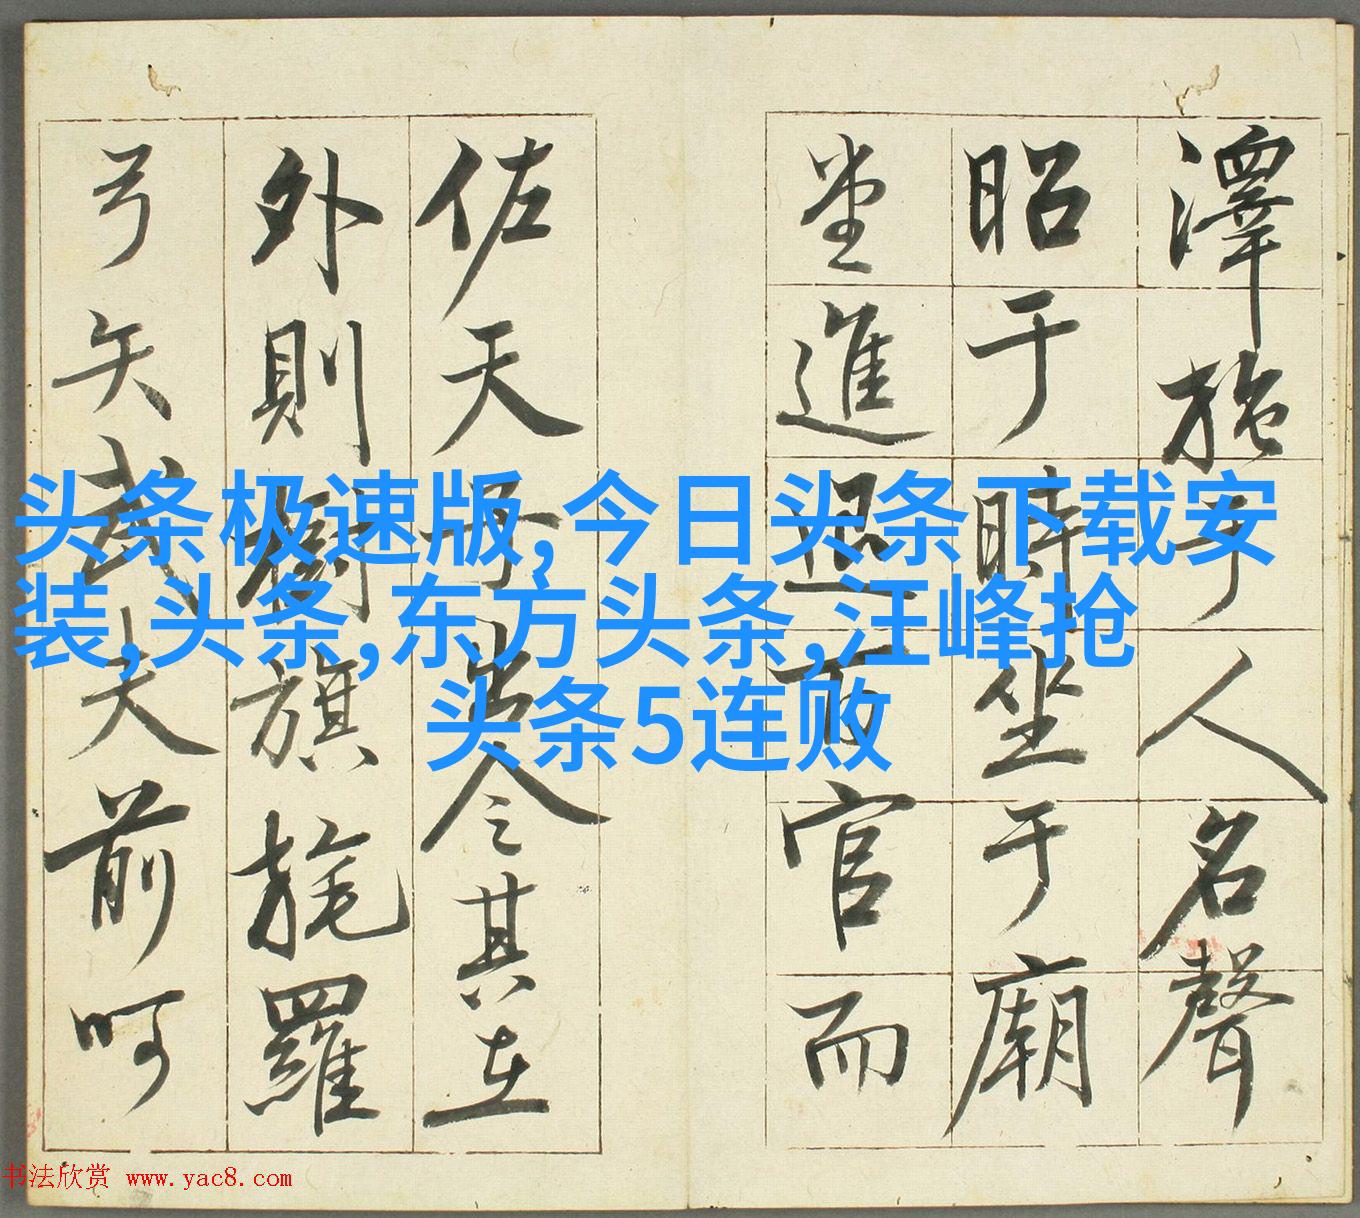 澤施于人名聲
昭于時坐于廟
堂進退百官而
佐天子出令其在
外則樹旗旄羅
弓矢武夫前呵
头条极速版,今日头条下载安
装,头条,东方头条,汪峰抢
头条5连败
书法欣赏 www.yac8.com